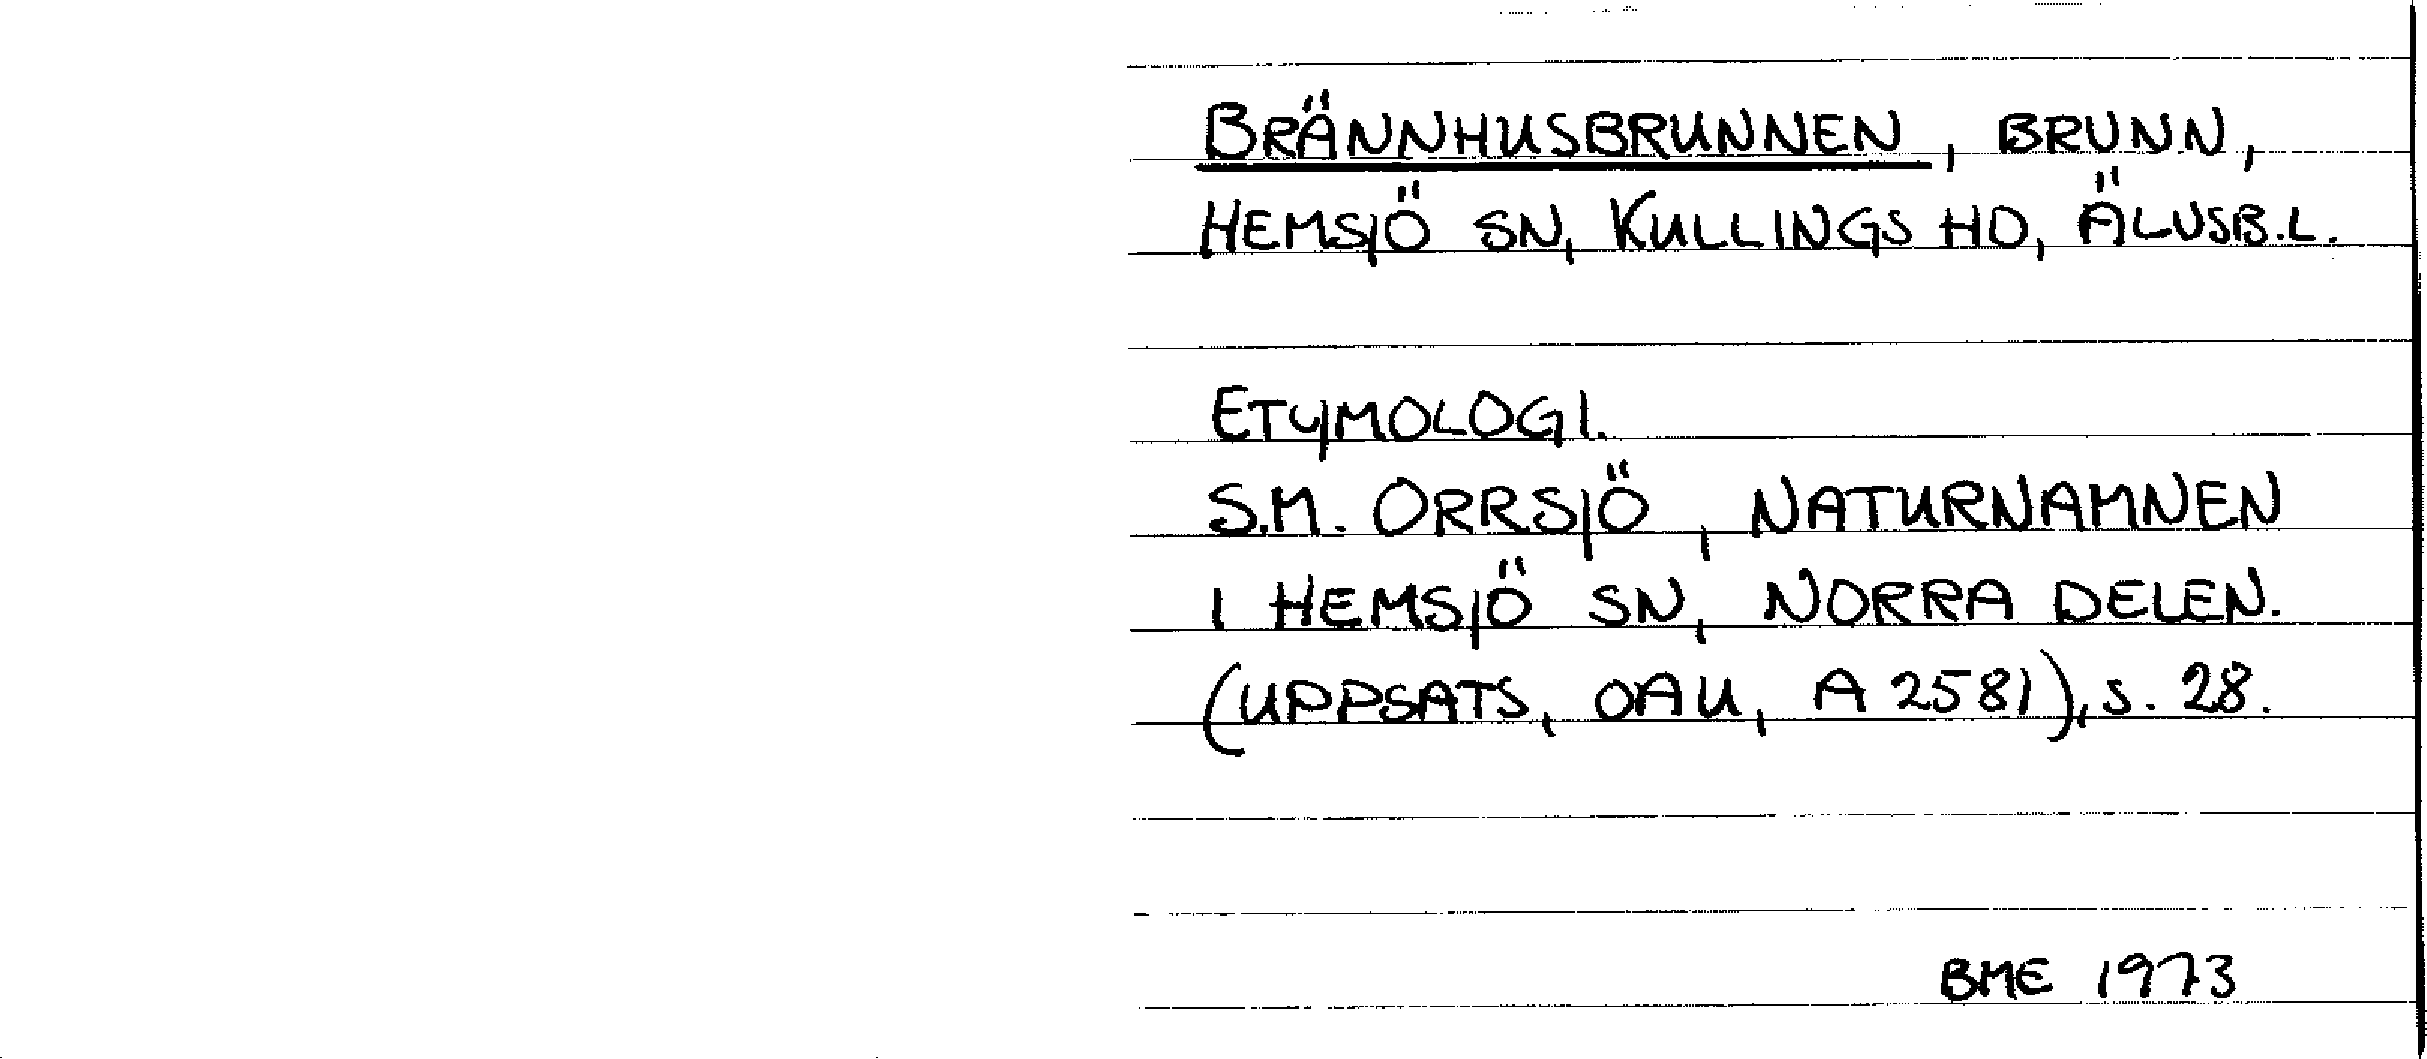 BRÄNNHUSBRUNNEN, BRUNN,
HEMSJÖ SN, KULLINGS HD, ÄLVSB.L.
ETYMOLOGI.
S.M. ORRSJÖ, NATURNAMNEN
I HEMSJÖ SN, NORRA DELEN.
(UPPSATS, OAU, A 2581), S. 28.
BME 1973